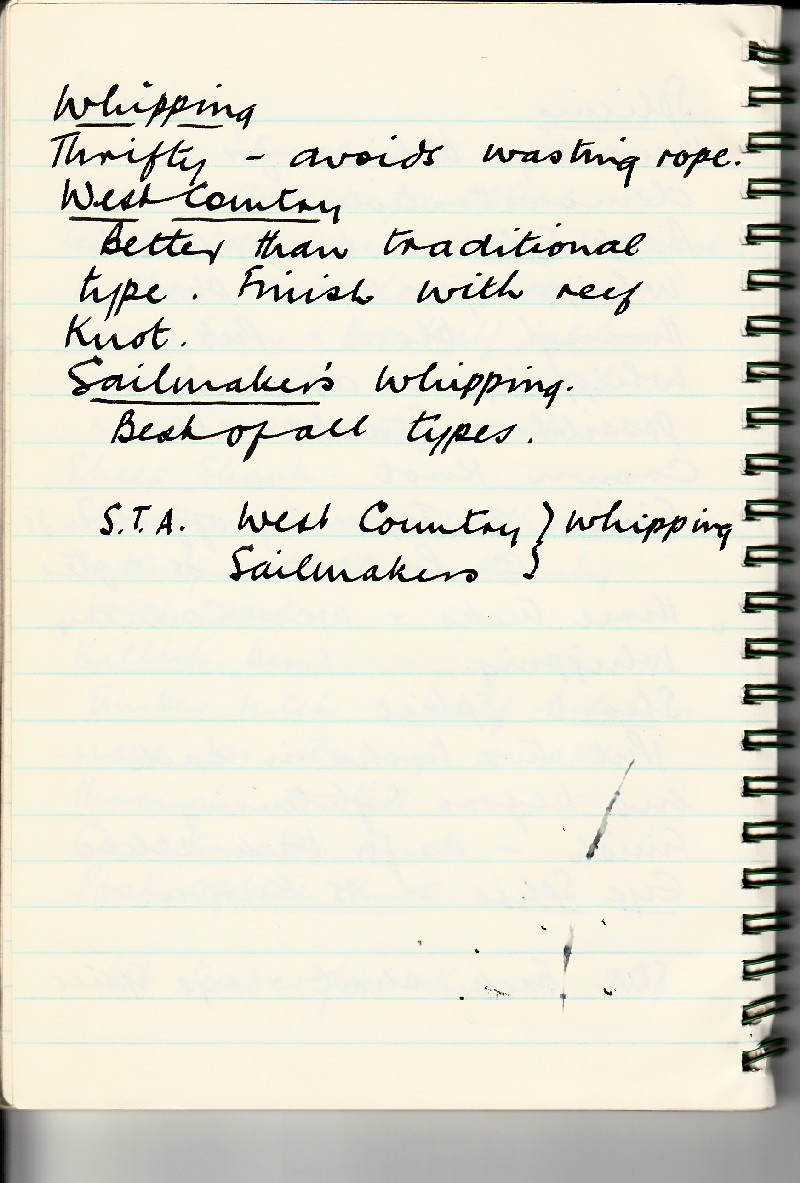 Whipping
Thrifty - avoids wasting rope.
West Country
Better than traditional
type. Finish with reef
Knot.
Sailmaker's Whipping.
Best of all types.
S.T.A. West Country } Whipping
Sailmakers }